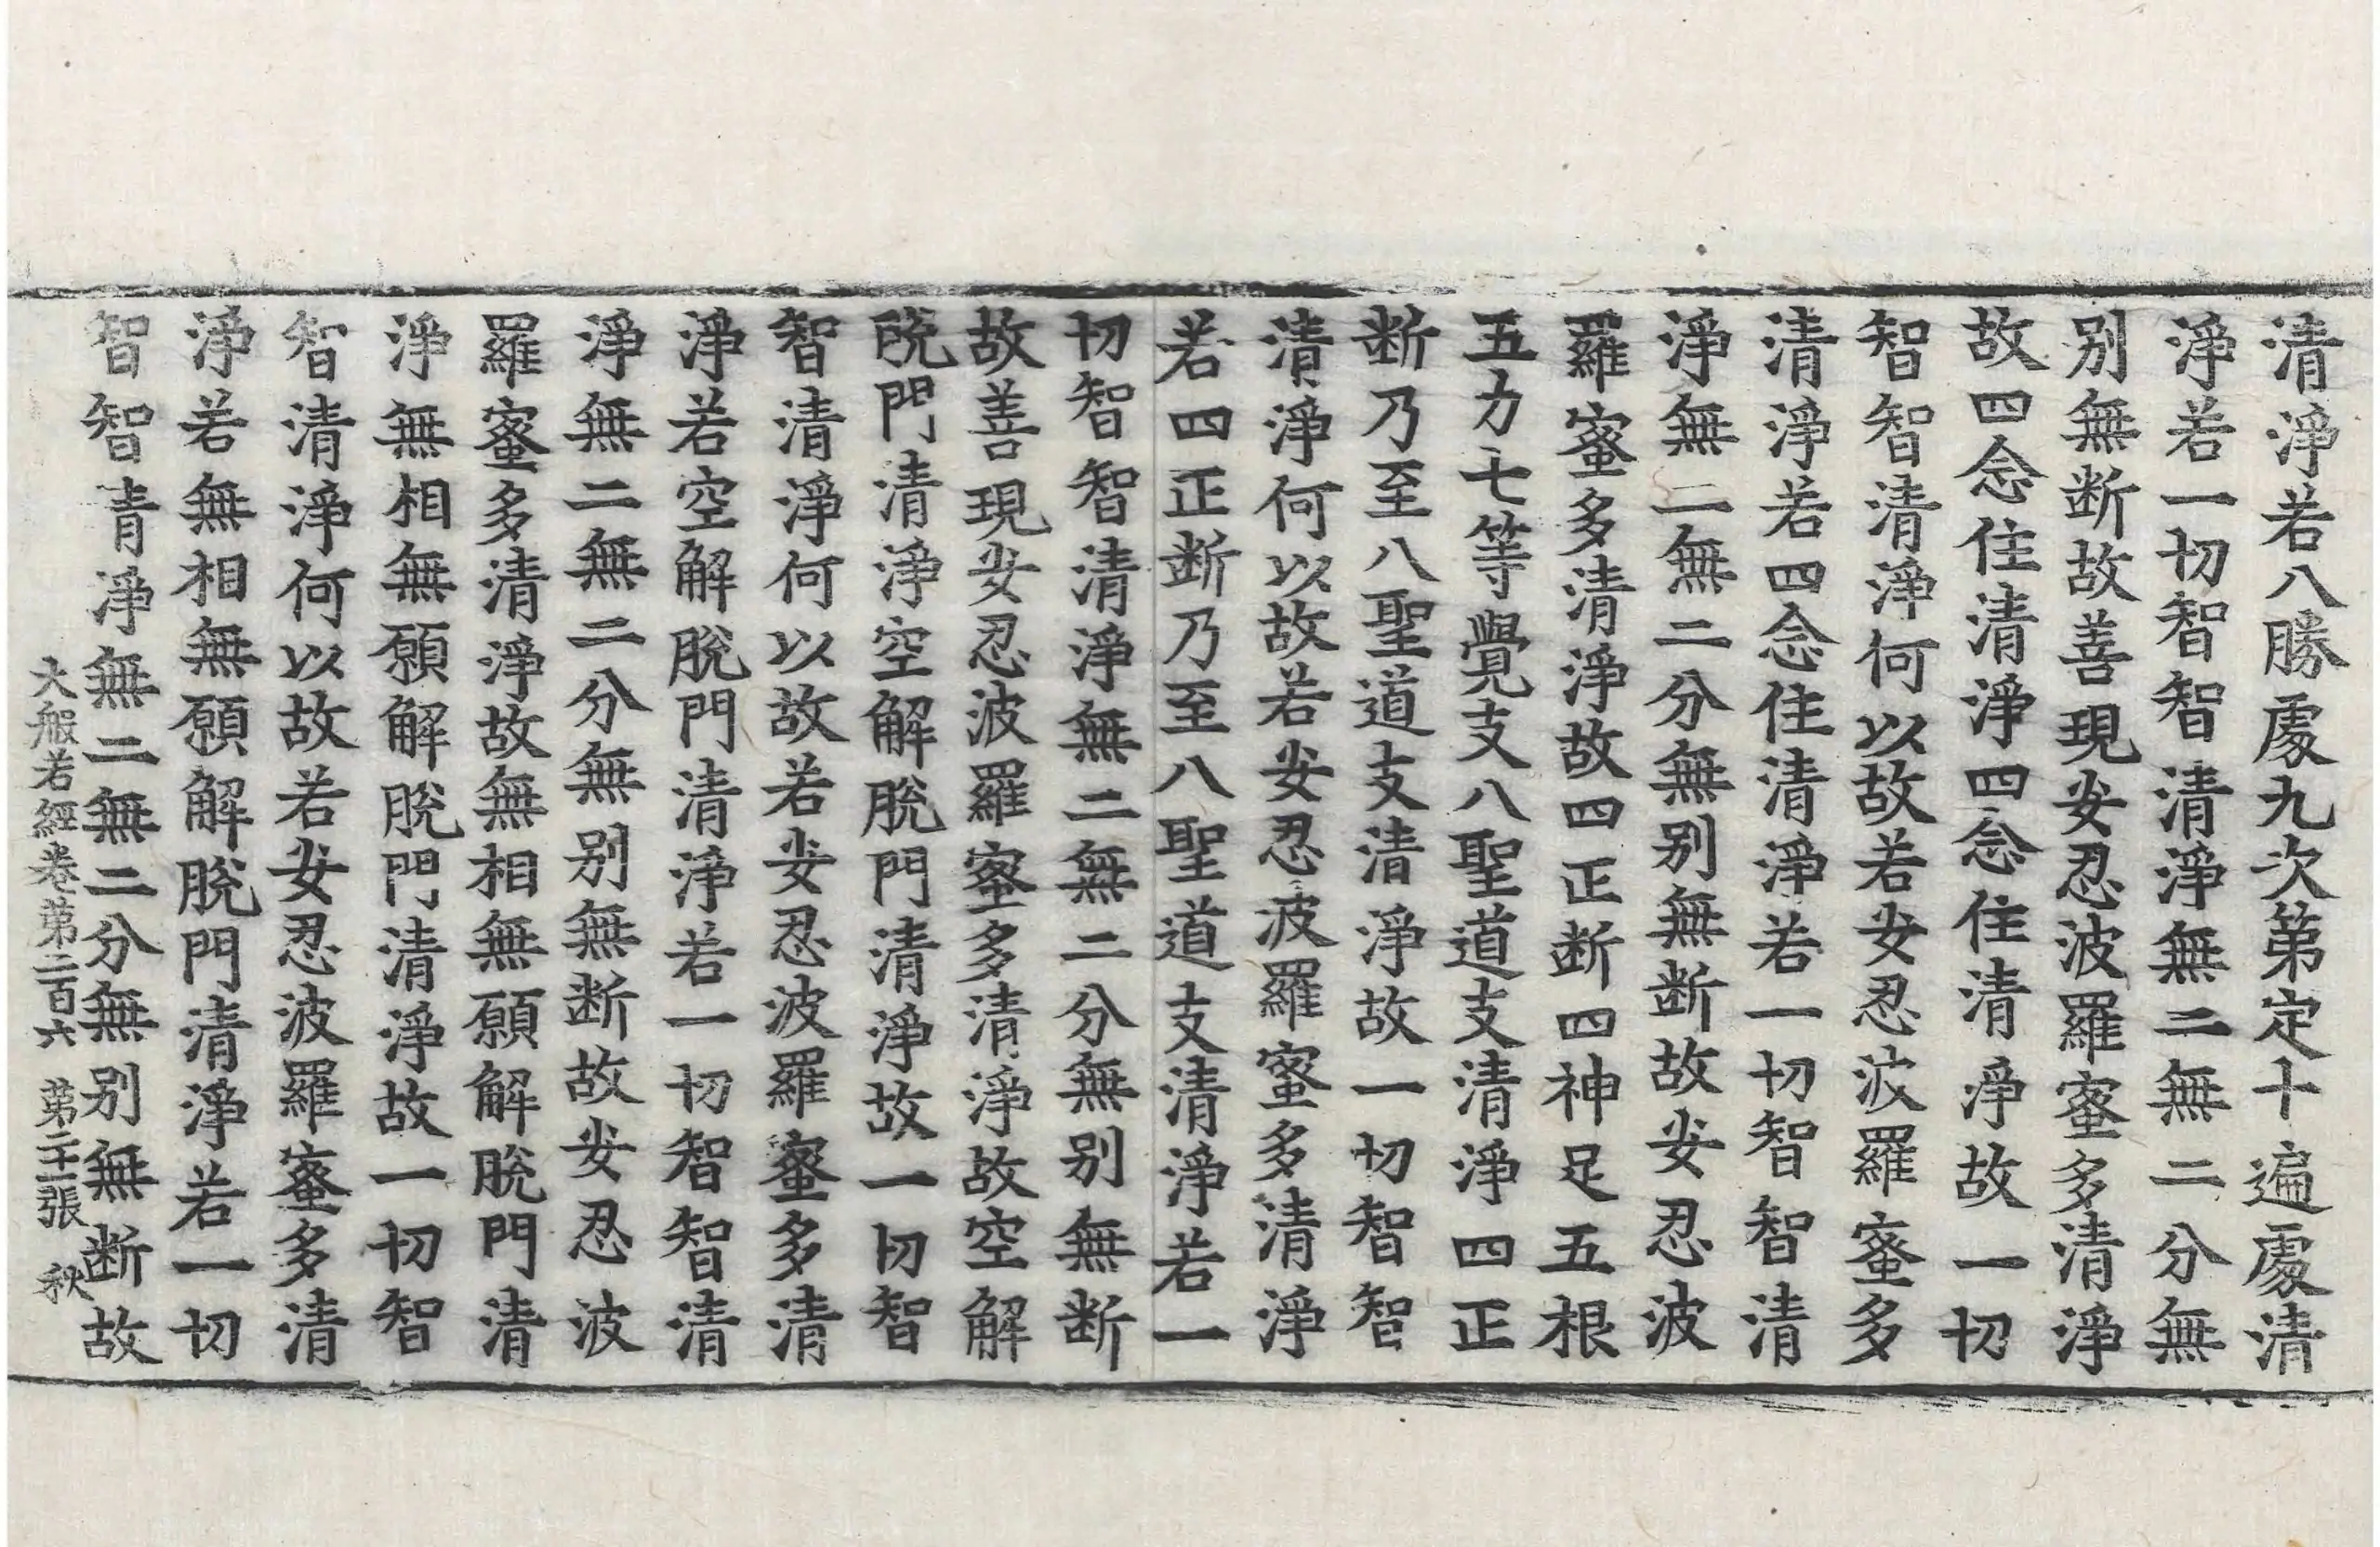 清淨若八勝處九次第定十遍處清
淨若一切智智清淨無二無二分無
别無断故善現安忍波羅蜜多清淨
故四念住清淨四念住清淨故一切
智智清淨何以故若安忍波羅蜜多
清淨若四念住清淨若一切智智清
淨無二無二分無别無断故安忍波
羅蜜多清淨故四正断四神足五根
五力七等覺支八聖道支清淨四正
断乃至八聖道支清淨故一切智智
清淨何以故若安忍波羅蜜多清淨
若四正断乃至八聖道支清淨若一
切智智清淨無二無二分無别無断
故善現安忍波羅蜜多清淨故空解
脫門清淨空解脫門清淨故一切智
智清淨何以故若安忍波羅蜜多清
淨若空解脫門清淨若一切智智清
淨無二無二分無别無断故安忍波
羅蜜多清淨故無相無願解脫門清
淨無相無願解脫門清淨故一切智
智清淨何以故若安忍波羅蜜多清
淨若無相無願解脫門清淨若一切
智智青淨無二無二分無别無断故
大般若經卷第二百六 第二十一張 秋